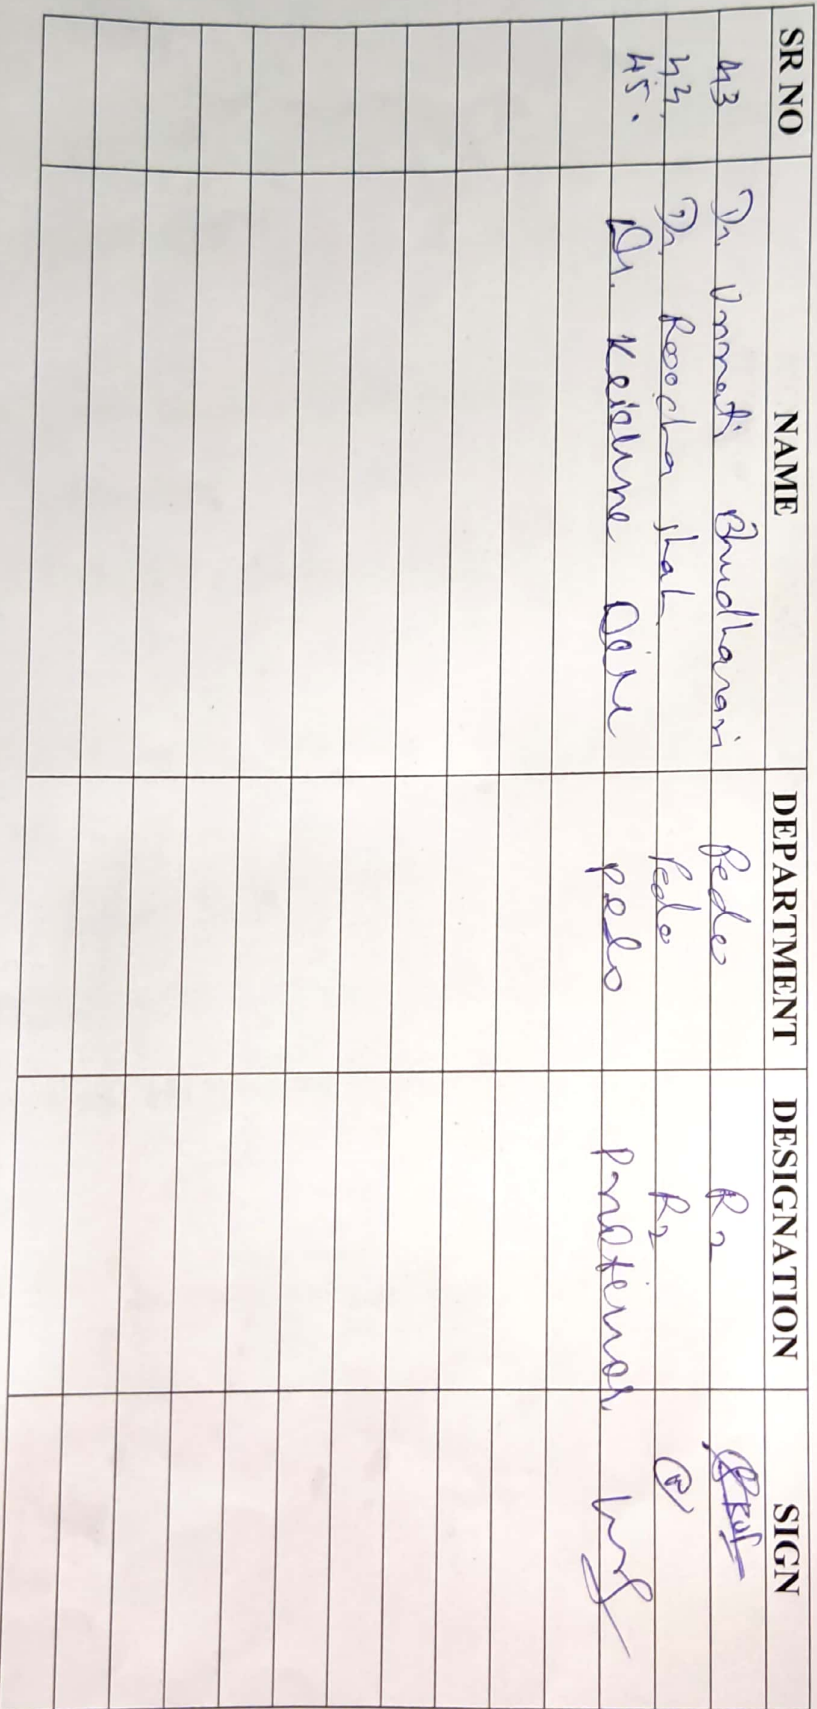 SR NO NAME DEPARTMENT DESIGNATION SIGN
43 Dr. Unnati Bhudharani Pedo R2
44. Dr. Roocha Shah Pedo R2
45. Dr. Krishna Pedo